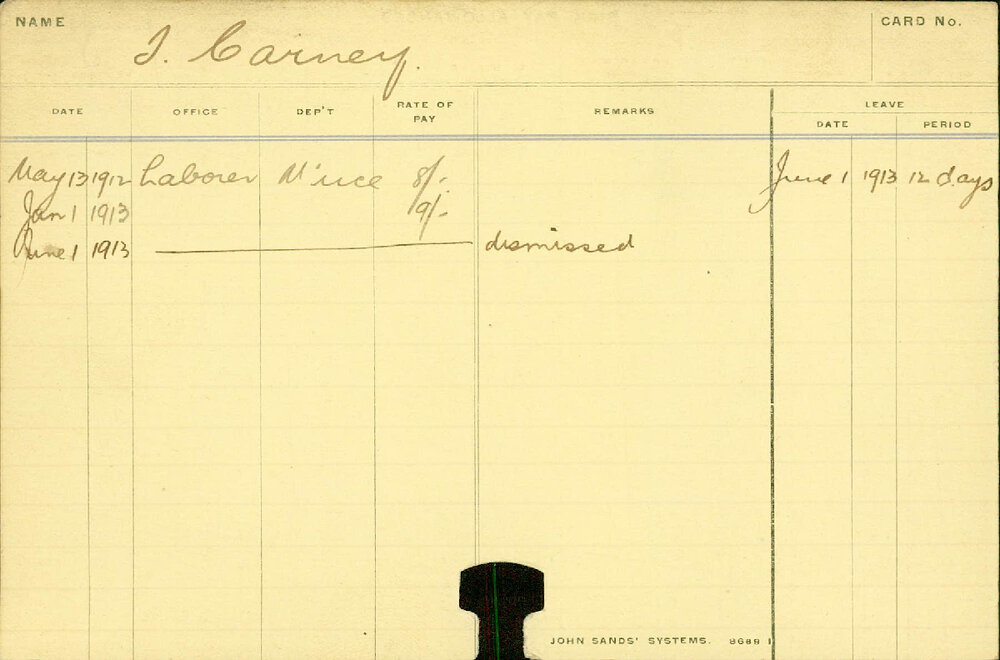 NAME
CARD No.
J. Carney.
DATE OFFICE DEP'T RATE OF PAY REMARKS LEAVE
DATE PERIOD
May 13 1912 Laborer M'nce 8/- June 1 1913 12 days
Jan 1 1913 9/-
June 1 1913 dismissed
JOHN SANDS' SYSTEMS. 8689